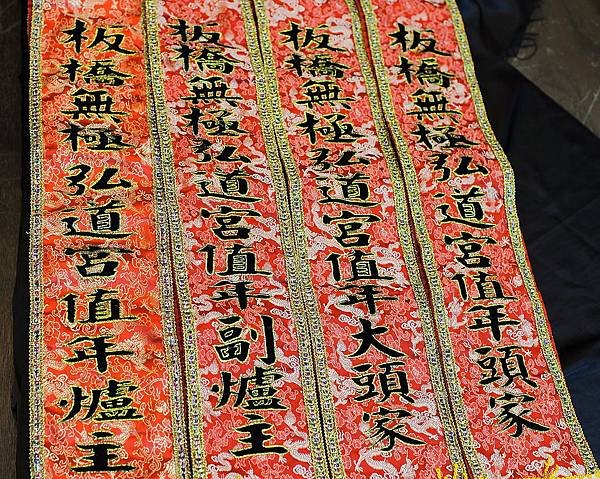 板橋無極弘道宮值年爐主
板橋無極弘道宮值年副爐主
板橋無極弘道宮值年大頭家
板橋無極弘道宮值年頭家